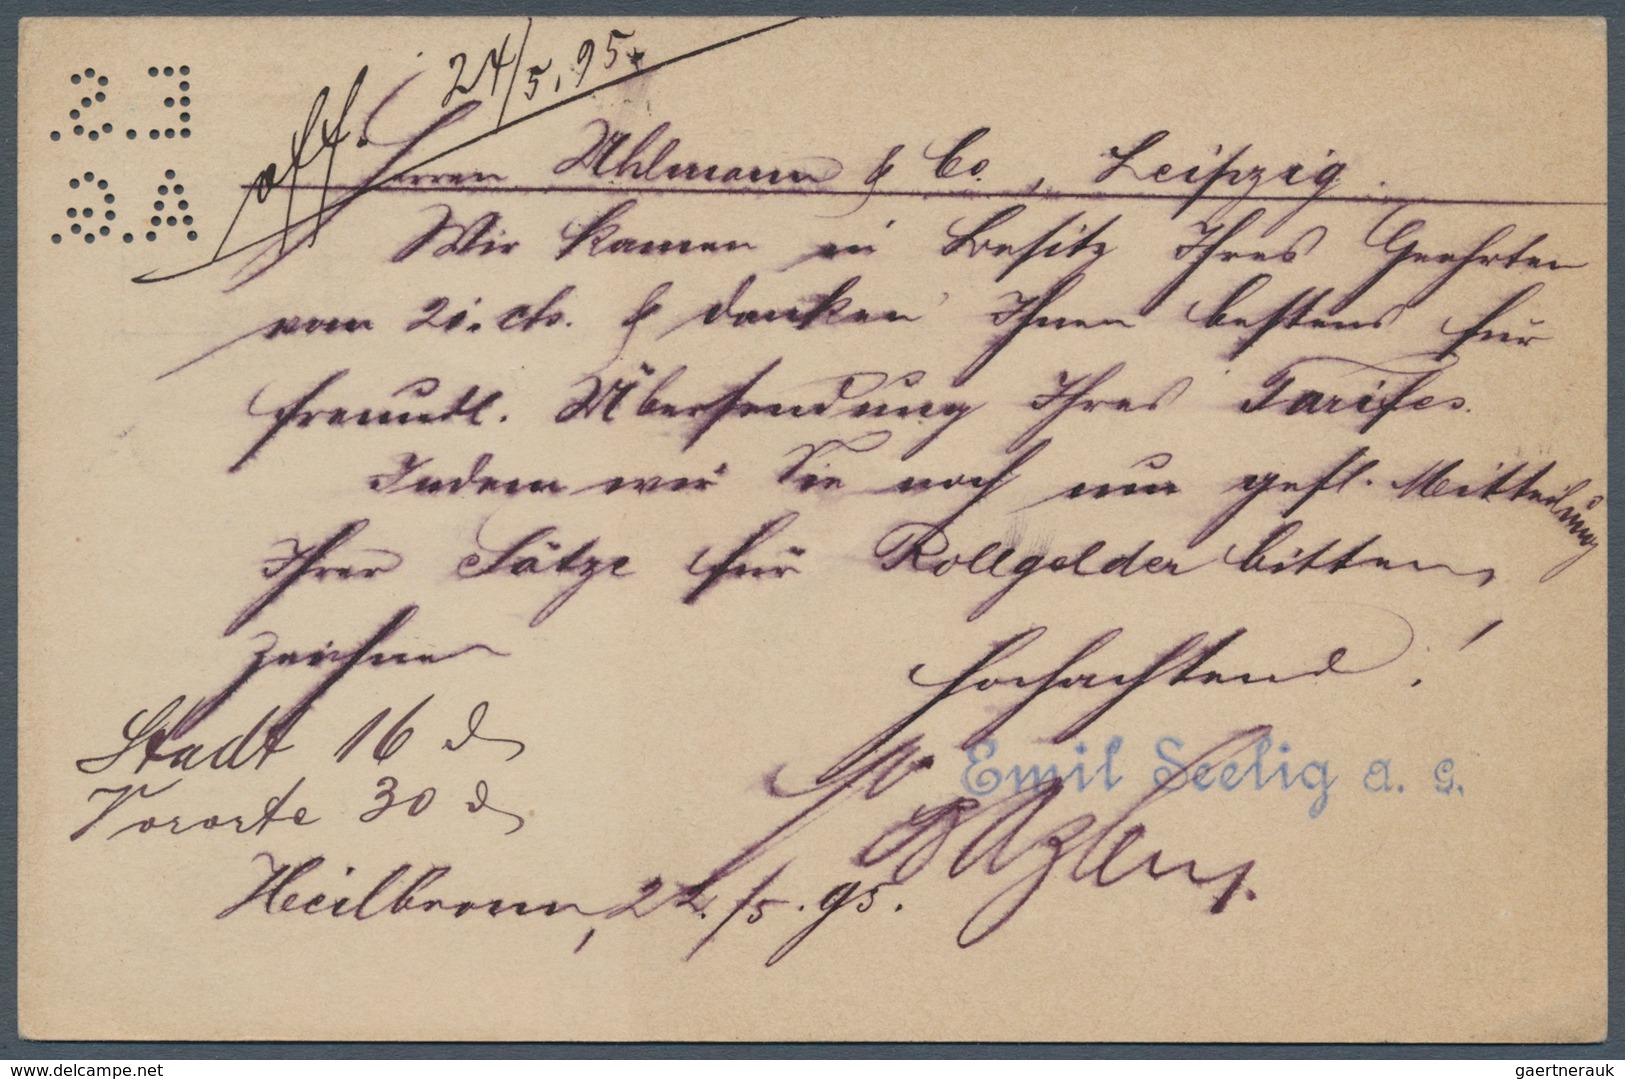 24/5. 95.
Herren Uhlmann & Co., Leipzig.
Wir kamen in Besitz Ihres Geehrten
vom 20. cts. & danken Ihnen bestens für
freundl. Übersendung Ihres Tarifes.
Indem wir Sie noch um gefl. Mitteilung
Ihrer Sätze für Rollgelder bitten,
zeichnen
Hochachtend!
Emil Seelig a. G.
Stadt 16 d
Vororte 30 d
Heilbronn, 22./5. 95.
E.S.
A.G.
www.delcampe.net
gaertnerauk